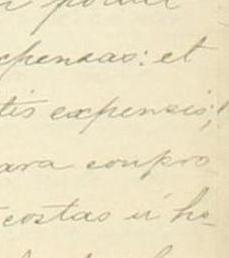 expensas: et
tis expensis;
ara compro
costas ú ho-